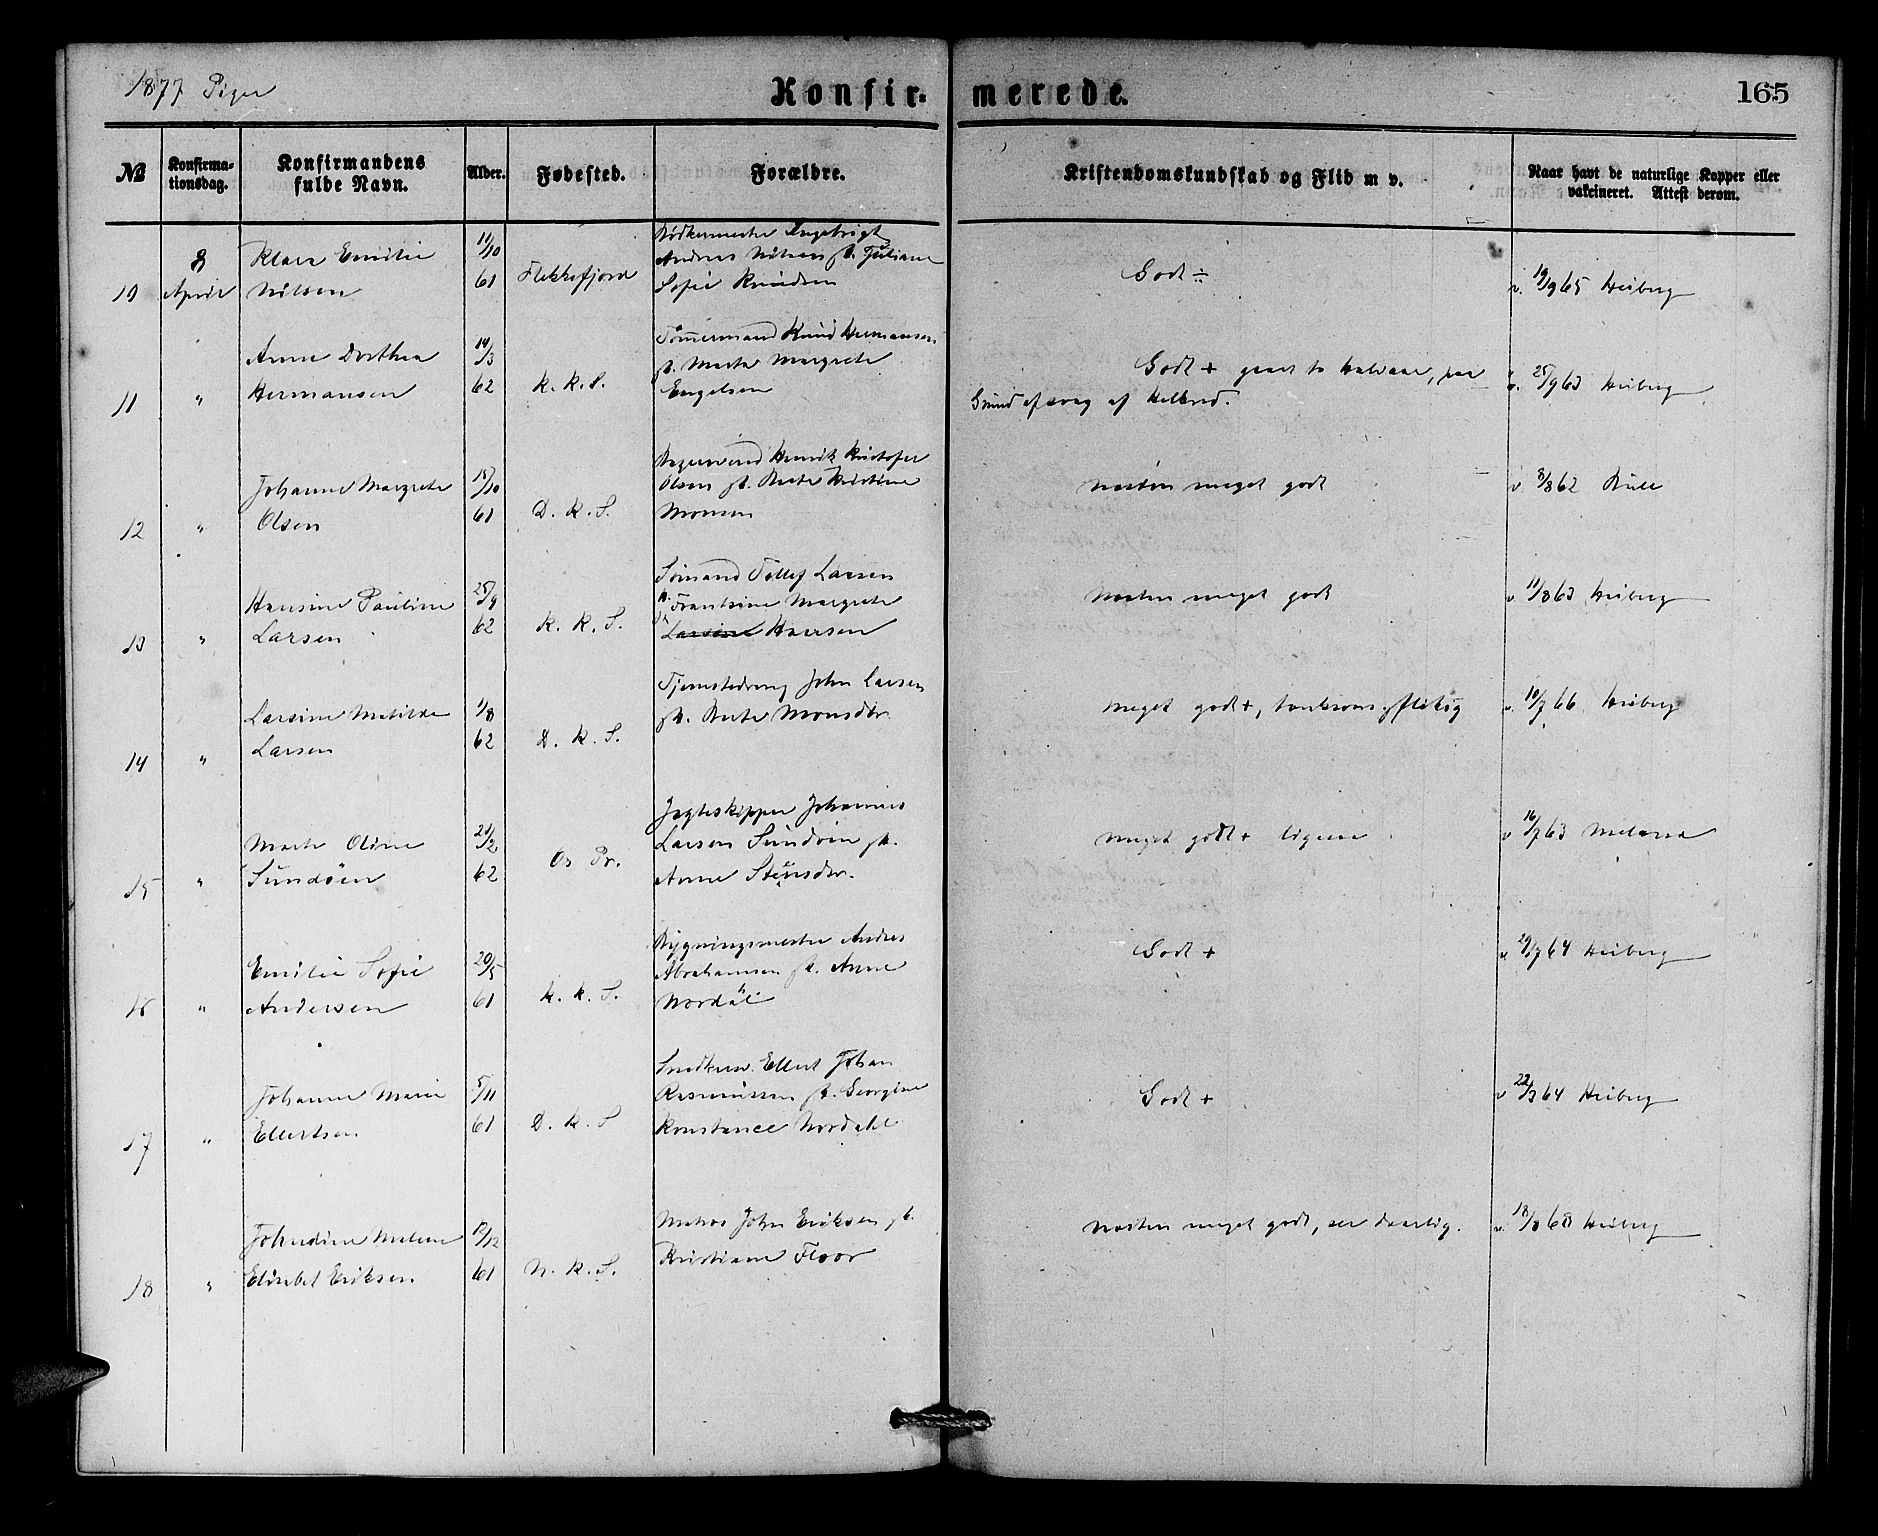 1877 Piger
Konfir- merede.
165
№
Konfirma-
tionsdag.
Konfirmandens
fulde Navn.
Alder.
Fødested.
Forældre.
Kristendomskundskab og Flid m v.
Naar havt de naturlige Kopper eller
vakcineret. Attest derom.
10
8
April
Klara Emilie
Nilsen
11/10
61
Flekkefjord
Bødkermester Ingebrigt
Andreas Nilsen fk. Juliane
Sofie Knudsen
Godt ÷
v. 19/9 65 Heiberg
11
"
Anne Dorthea
Hermansen
14/3
62
K. K. S.
Tømmermand Knud Hermansen
fk. Marta Margrete
Engelsen
Godt +
Grund af svag Helbred.
v. 25/9 63 Heiberg
12
"
Johanne Margrete
Olsen
15/10
61
D. K. S.
Henrik Kristofer
Olsen fk. Berte Kristine
Monsen
næsten meget godt
v. 8/8 62
13
"
Hansine Pauline
Larsen
25/9
62
K. K. S.
Sømand Tollef Larsen
fk. Frantsine Margrete
Larsine Hansen
Næsten meget godt
v. 11/8 63 Heiberg
14
"
Larsine Matilde
Larsen
1/8
62
D. K. S.
Tjenestedreng John Larsen
fk. Berte Monsdtr.
meget godt +, tænksom, flittig
v. 10/7 66 Heiberg
15
"
Marte Oline
Sundöen
21/2
62
Os Pr.
Jagteskipper Johannes
Larsen Sundöen fk.
Anne Stensdtr.
meget godt + ligesaa
v 16/7 63
16
"
Emilie Sofie
Andersen
20/5
61
K. K. S.
Bygningsmester Andreas
Abrahamsen fk. Anne
Nordal
Godt +
v. 29/7 64 Heiberg
17
"
Johanne Marie
Ellertsen
5/11
61
D. K. S
Snedkersv. Ellert Johan
Rasmussen fk. Georgine
Konstance Nordahl
Godt +
v 22/3 64 Heiberg
18
"
Johndine Malene
Elisabet Eriksen
12/12
61
N. K. S.
Matros John Eriksen fk.
Kristiane Floor
næsten meget godt, daarlig.
v. 18/8 68 Heiberg